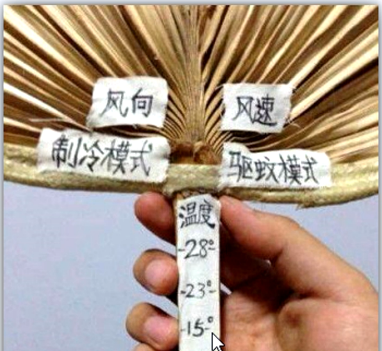 风向
风速
制冷模式
驱蚊模式
温度
-28°-
-23°-
-15-°